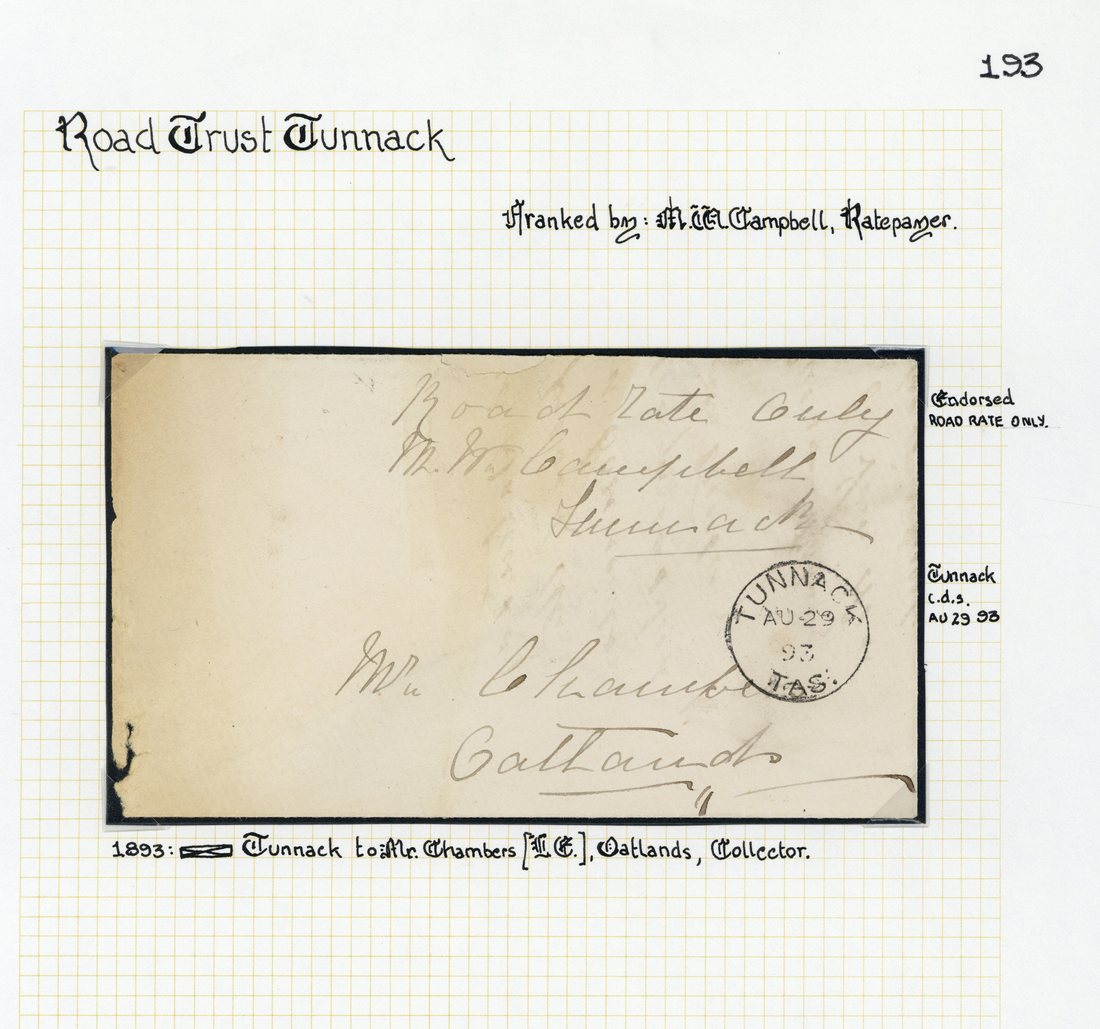 193
Road Trust Tunnack
Franked by: M.W. Campbell, Ratepayer.
Road Rate Only
M. W. Campbell
Tunnack
Endorsed
ROAD RATE ONLY.
TUNNACK
AU 29
93
TAS.
Tunnack
c.d.s.
AU 29 93
Mr Chambe
Oatlands
1893: Tunnack to Mr. Chambers [L.E.], Oatlands, Collector.